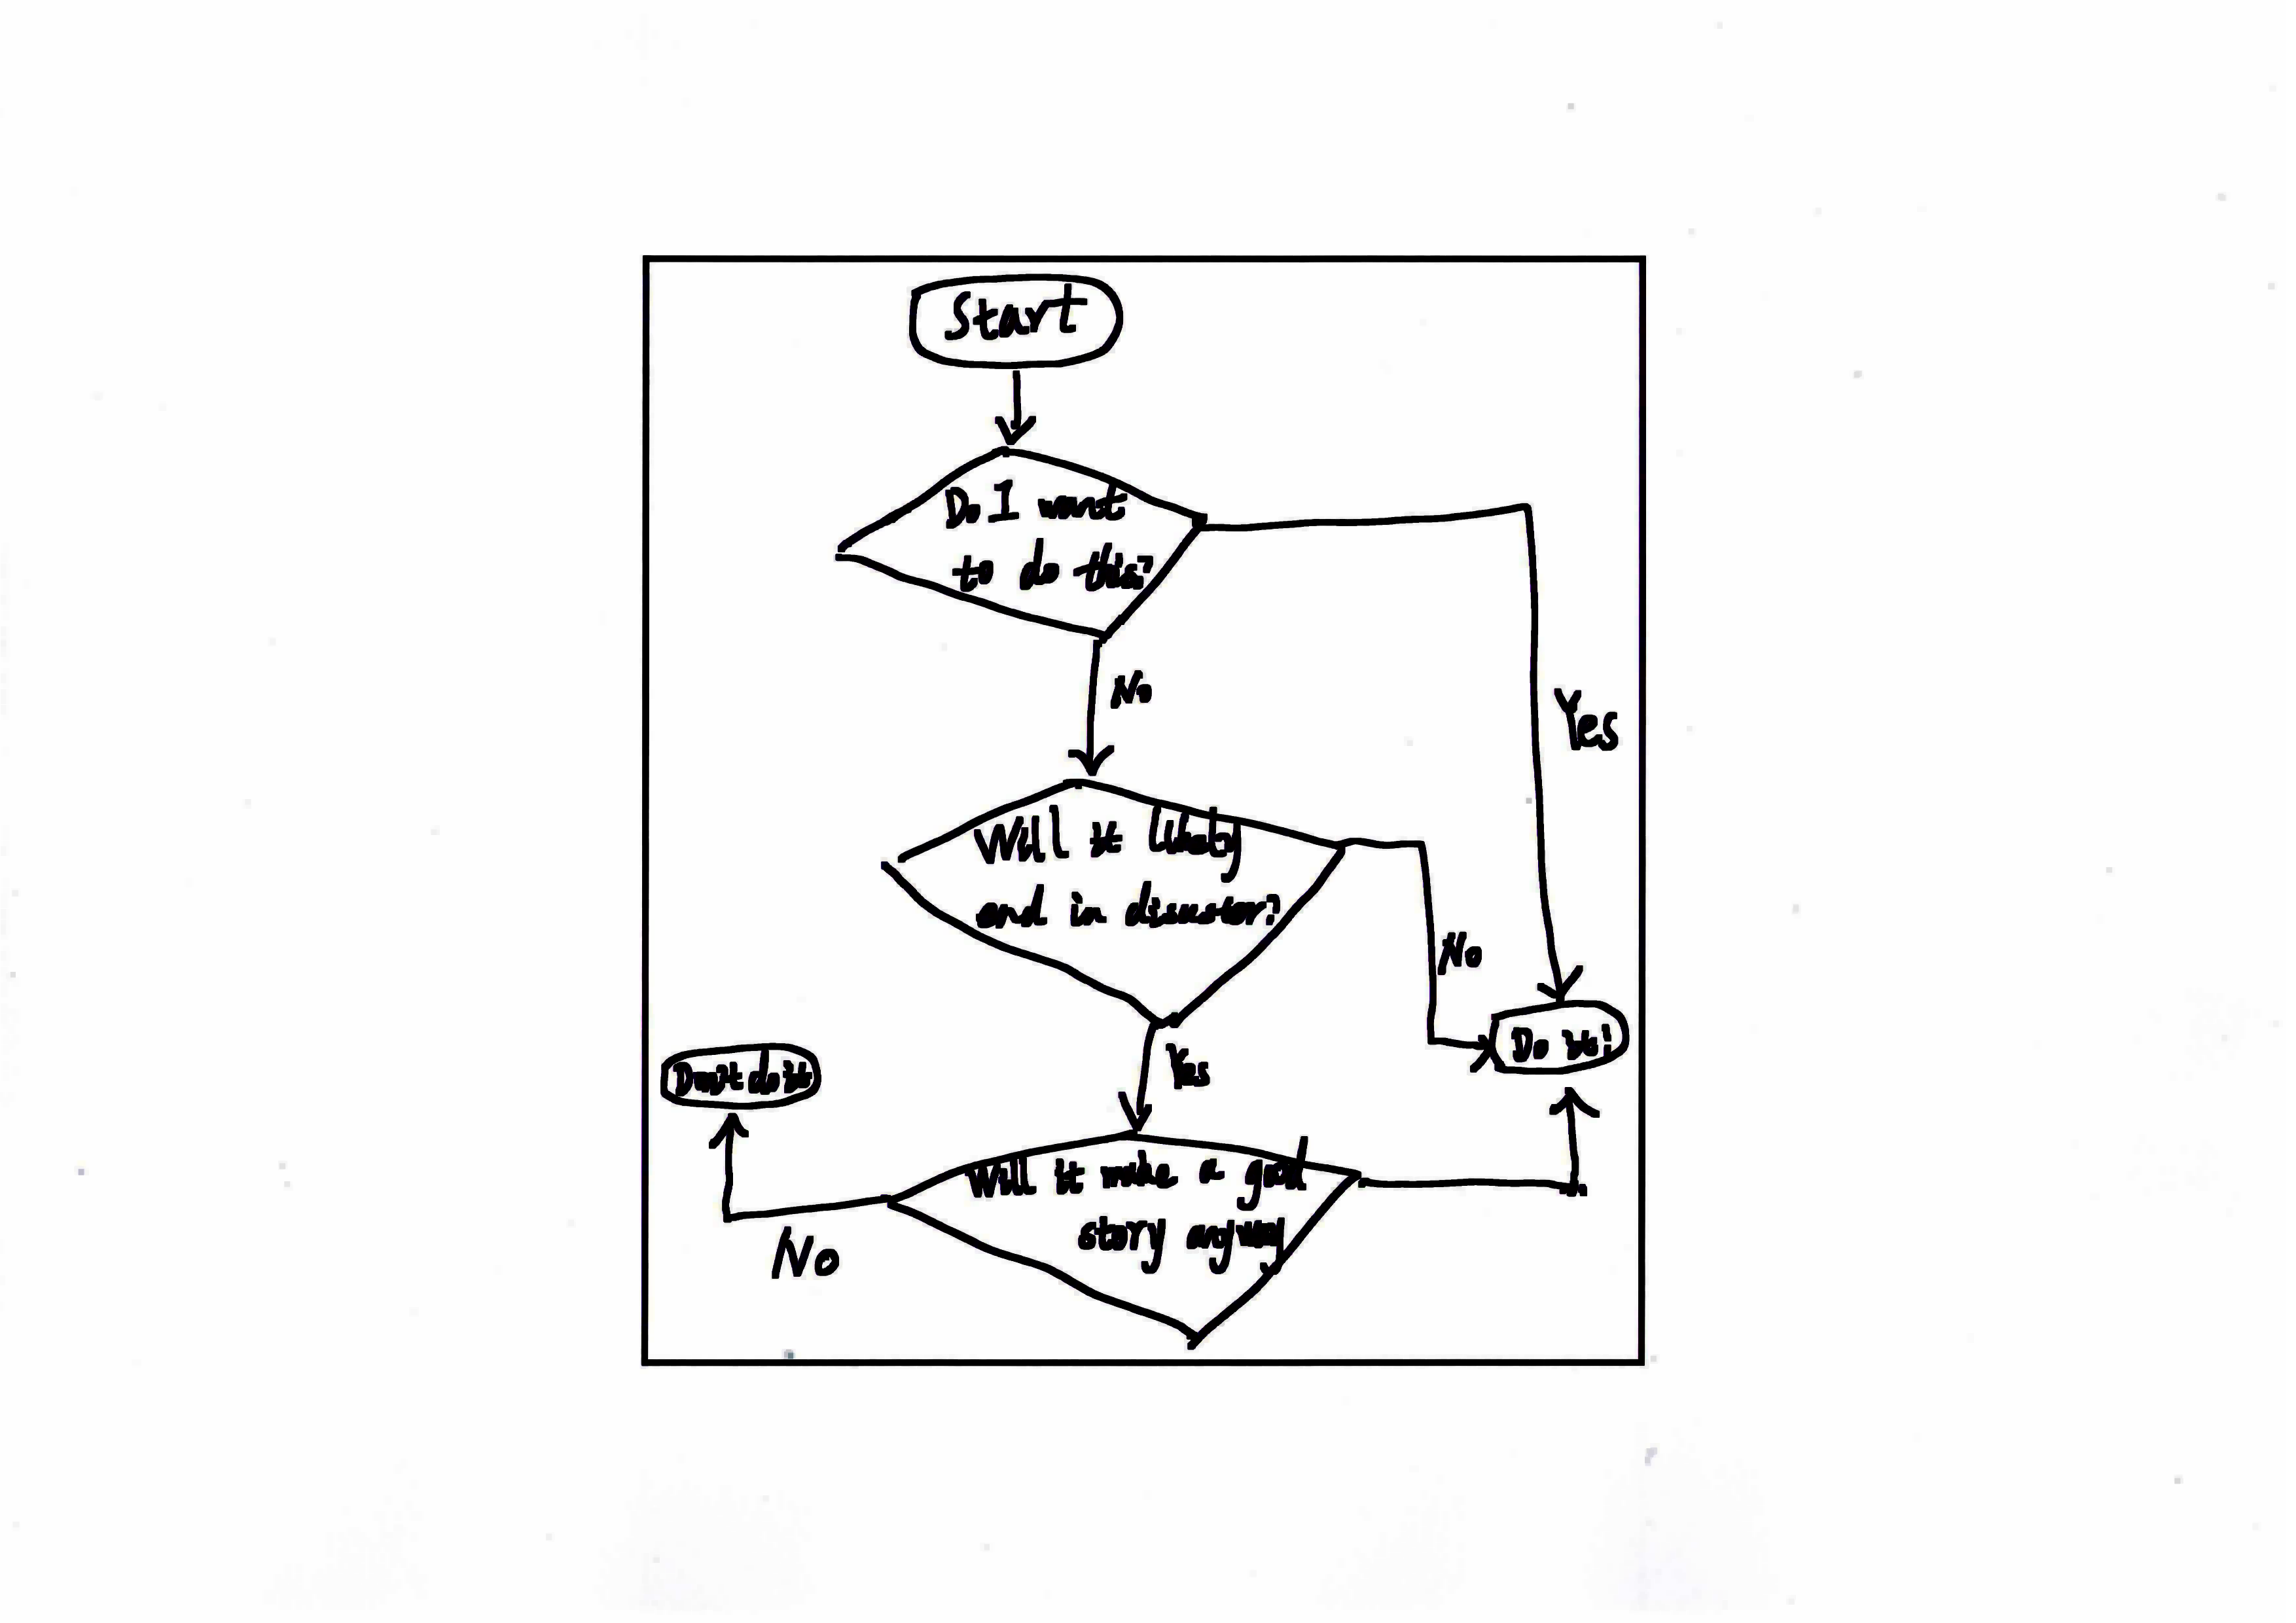 Start
Do I want
to do this?
No
Yes
Will it likely
end in disaster?
No
Do it!
Yes
Don't do it
Will it make a good
story anyway
No